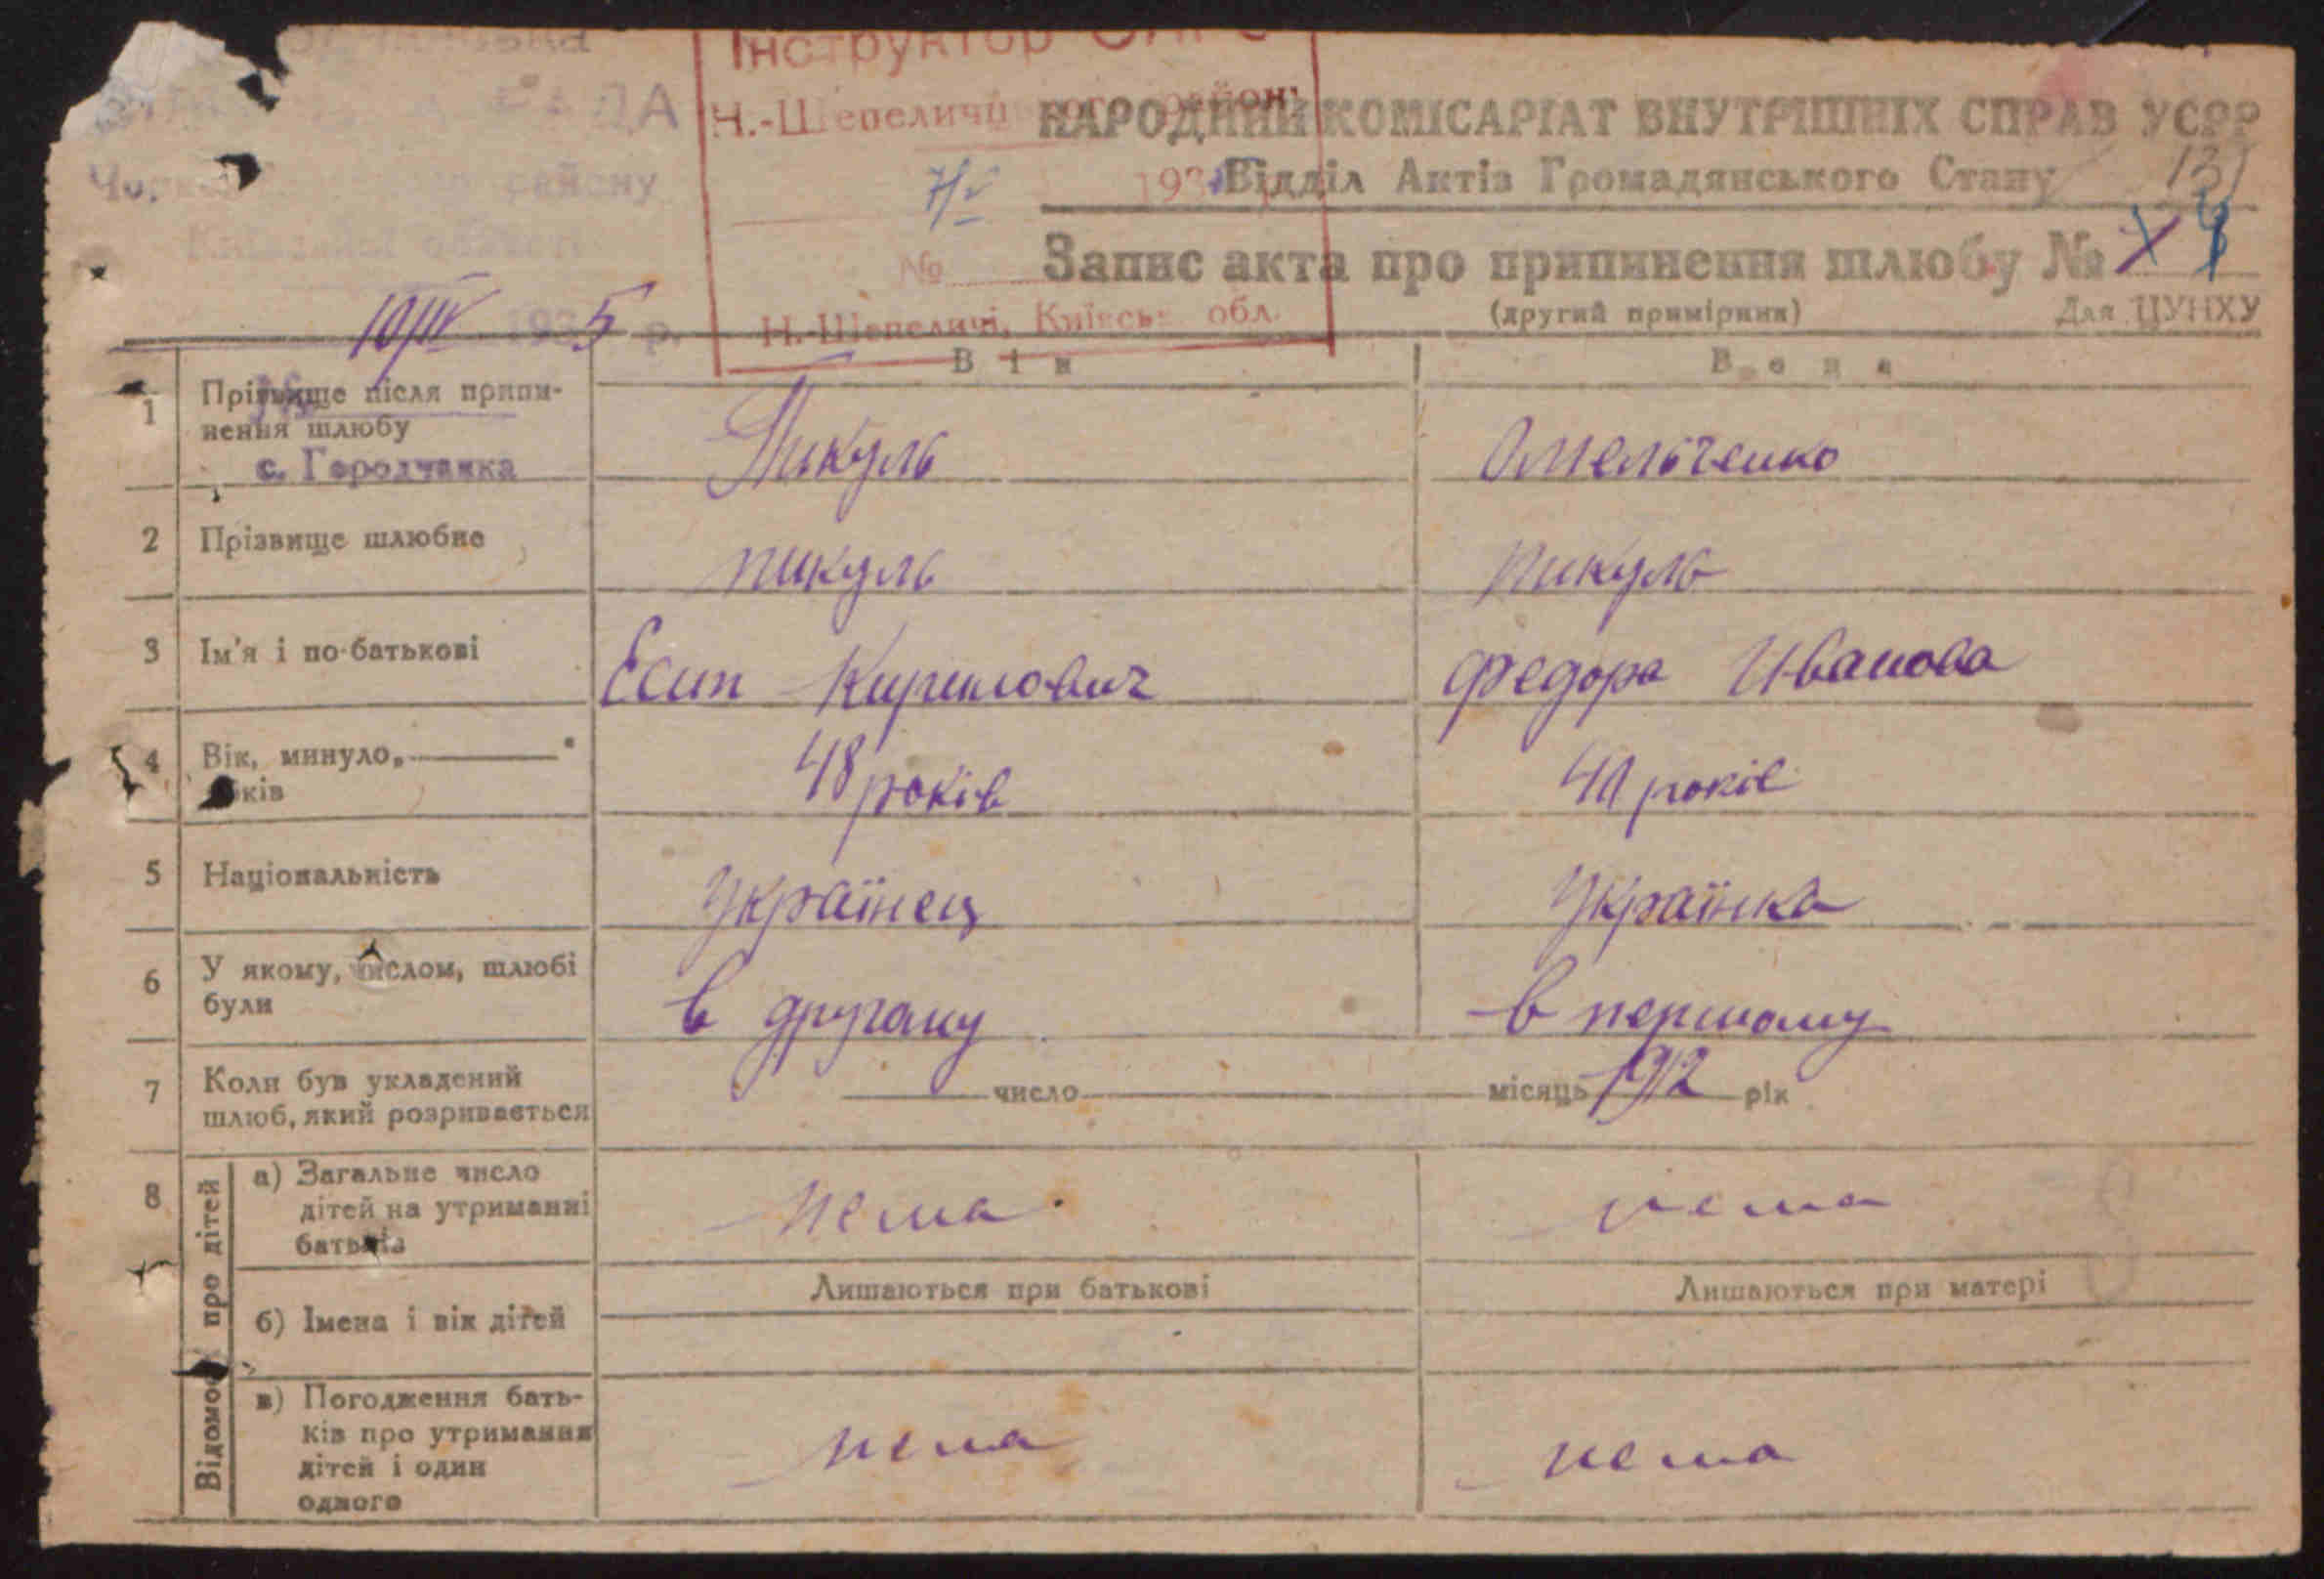 Інструктор
РАДА
Н.-Шепелич району
НАРОДНИЙ КОМІСАРІАТ ВНУТРІШНІХ СПРАВ УСРР
району
7/V 193
Відділ Актів Громадянського Стану
131
Київської області
№
Запис акта про припинення шлюбу №
10/IV 1935 р.
Н.-Шепеличі, Київськ. обл.
(другий примірник) Для ЦУНХУ
Він Вона
1 Прізвище після припи-
нення шлюбу
с. Городчанка
Пикуль Омельченко
2 Прізвище шлюбне пикуль пикуль
3 Ім'я і по-батькові Есип Кирилович Федора Иванова
4 Вік, минуло, років
48 років років
5 Національність Українец Українка
6 У якому, числом, шлюбі
були
в другому в першому
7 Коли був укладений
шлюб, який розривається
число місяць 1912 рік
8 Відомості про дітей
а) Загальне число
дітей на утриманні
батьків
нема нема
Лишаються при батькові Лишаються при матері
б) Імена і вік дітей
в) Погодження бать-
ків про утримання
дітей і один
одного
нема нема